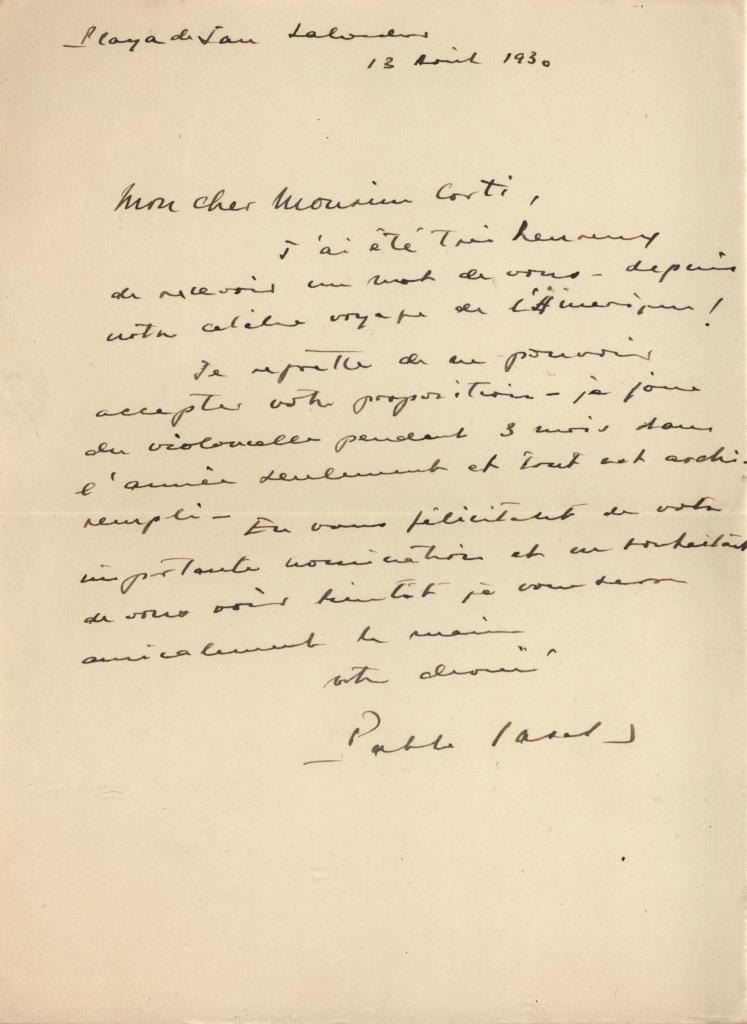 Playa de San Salvador
13 Août 1930
Mon cher Monsieur Corti,
J'ai été très heureux
de recevoir un mot de vous – depuis
notre célèbre voyage de l'Amerique !
Je regrette de ne pouvoir
accepter votre proposition – je joue
du violoncelle pendant 3 mois dans
l'année seulement et tout est archi-
rempli – En vous félicitant de votre
importante nomination et en souhaitant
de vous voir bientôt je vous serre
amicalement la main
votre dévoué
Pablo Casals